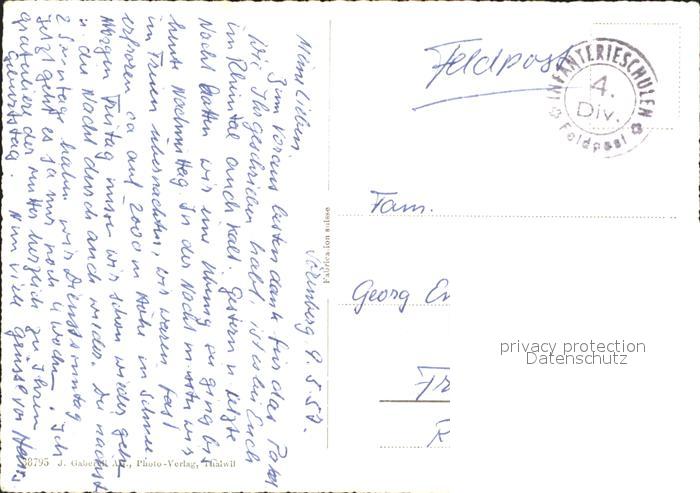 Walenberg 9.5.57.
Meine Lieben.
Zum voraus besten dank für das Paket
Wie Ihr geschrieben habt ist es bei Euch
im Rheintal auch kalt. Gestern u. letzte
Nacht hatten wir eine Übung es ging bis
heute Nachmittag. In der Nacht mussten wir
im Freien übernachten, wir waren fast
erfroren ca auf 2000 m Höhe im Schnee.
Morgen Freitag müssen wir schon wieder gehn
u. die Nacht durch auch wieder. Die nächst
2 Sonntage haben wir Dienstsonntag
Jetzt geht es ja nur noch 4 Wochen. Ich
gratuliere der Mutter herzlich zu Ihrem
Geburtstag. Nun viele Grüsse von Hans
Feldpost
INFANTERIESCHULEN
4.
Div.
Feldpost
Fam.
Georg
Fabrication suisse
8795 J. Gaberell A.G., Photo-Verlag, Thalwil
privacy protection
Datenschutz